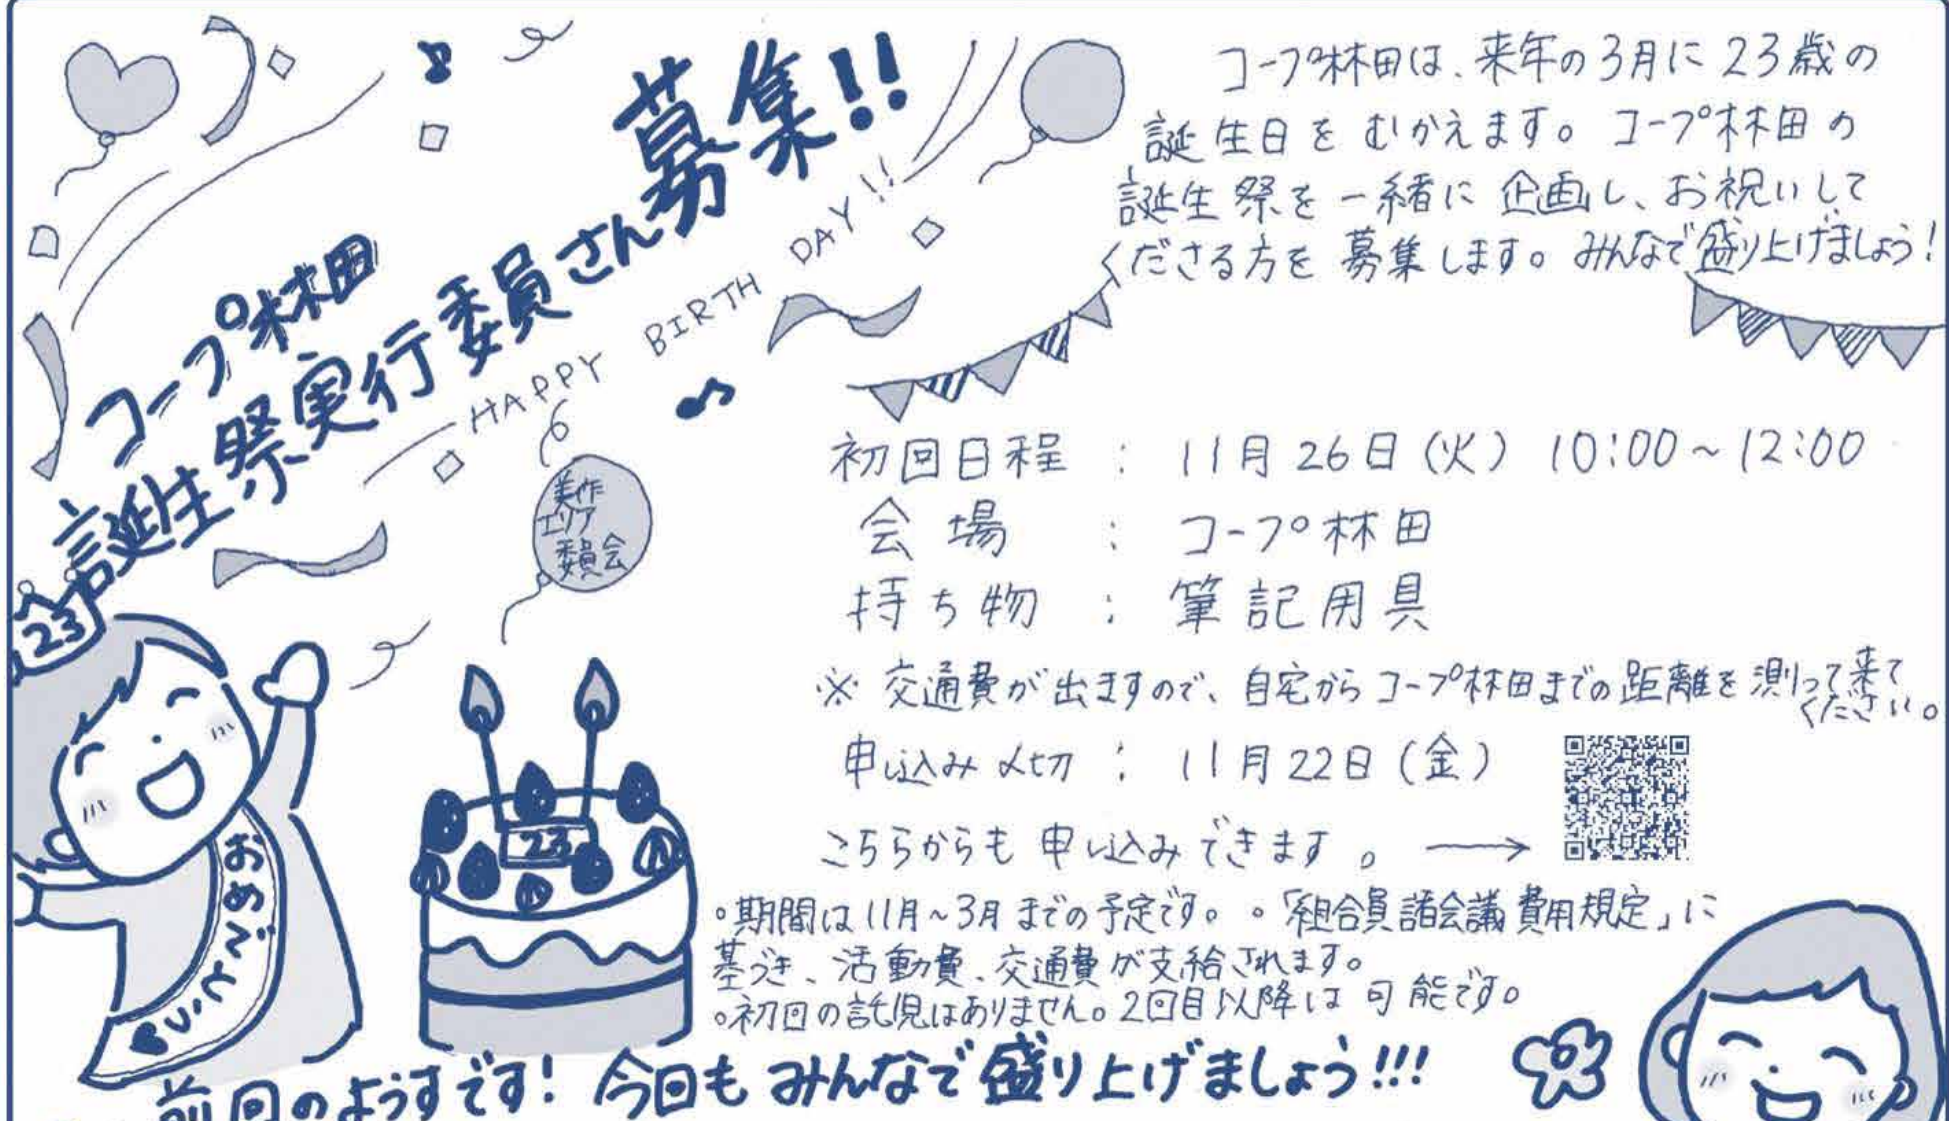 コープ林田
誕生祭実行委員さん募集!!
HAPPY BIRTH DAY!!
コープ林田は、来年の3月に23歳の
誕生日をむかえます。コープ林田の
誕生祭を一緒に企画し、お祝いして
くださる方を募集します。みんなで盛り上げましょう!
美作
エリア
委員会
初回日程 : 11月26日(火) 10:00~12:00
会場 : コープ林田
持ち物 : 筆記用具
※ 交通費が出ますので、自宅からコープ林田までの距離を測って来て
ください。
申し込み〆切 : 11月22日(金)
こちらからも申し込みできます。→
23
おめでとう
23
。期間は11月~3月までの予定です。。「組合員諸会議費用規定」に
基づき、活動費、交通費が支給されます。
。初回の託児はありません。2回目以降は可能です。
前回のようすです!今回もみんなで盛り上げましょう!!!